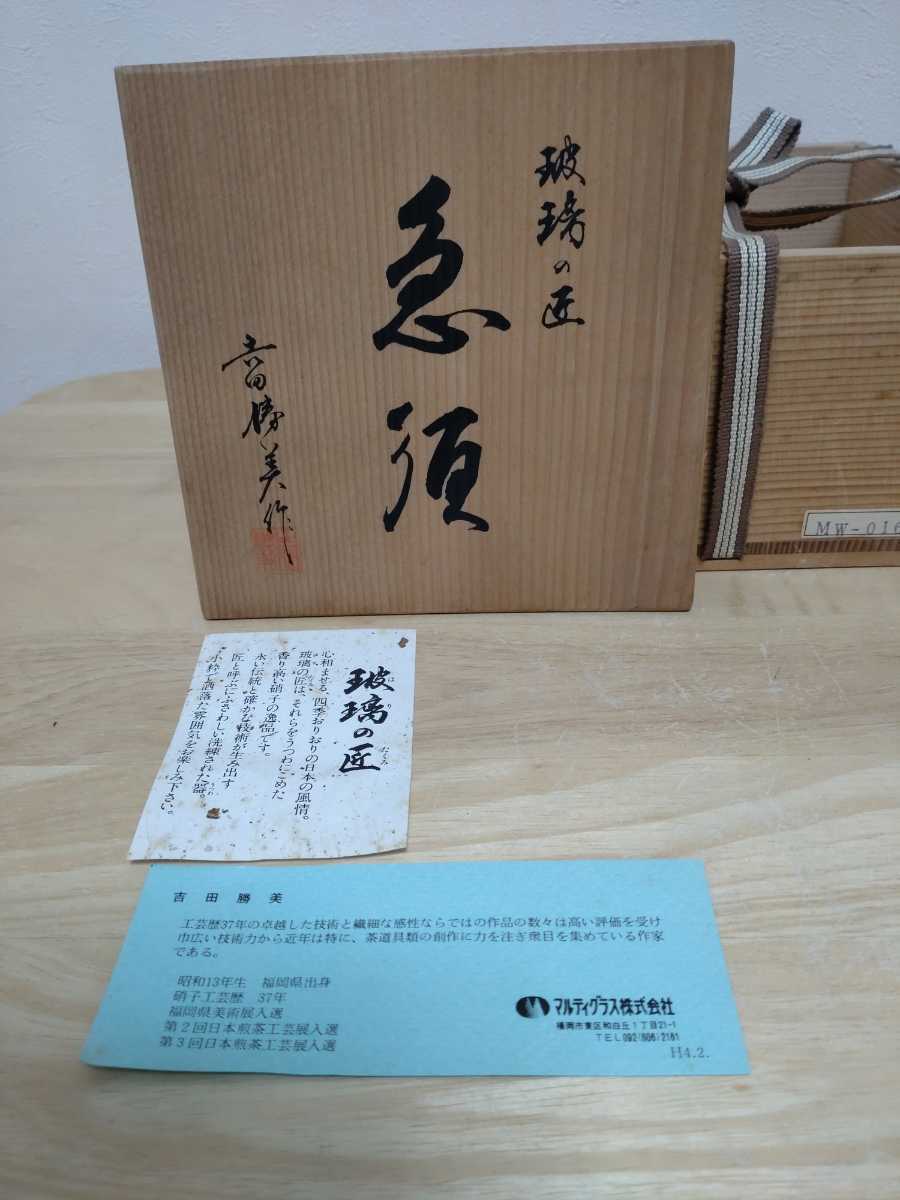 玻璃の匠
急須
吉田勝美作
MW-016
玻璃の匠
はり
たくみ
心和ませる、四季おりおりの日本の風情。
玻璃の匠は、それらをうつわにこめた
香り高い硝子の逸品です。
永い伝統と確かな技術が生み出す
匠と呼ぶにふさわしい洗練された器。
小粋で洒落た雰囲気をお楽しみ下さい。
吉田勝美
工芸歴37年の卓越した技術と繊細な感性ならではの作品の数々は高い評価を受け
巾広い技術力から近年は特に、茶道具類の創作に力を注ぎ衆目を集めている作家
である。
昭和13年生 福岡県出身
硝子工芸歴 37年
福岡県美術展入選
第2回日本煎茶工芸展入選
第3回日本煎茶工芸展入選
マルティグラス株式会社
福岡市東区和白丘1丁目21-1
TEL 092(606)2181
H4.2.